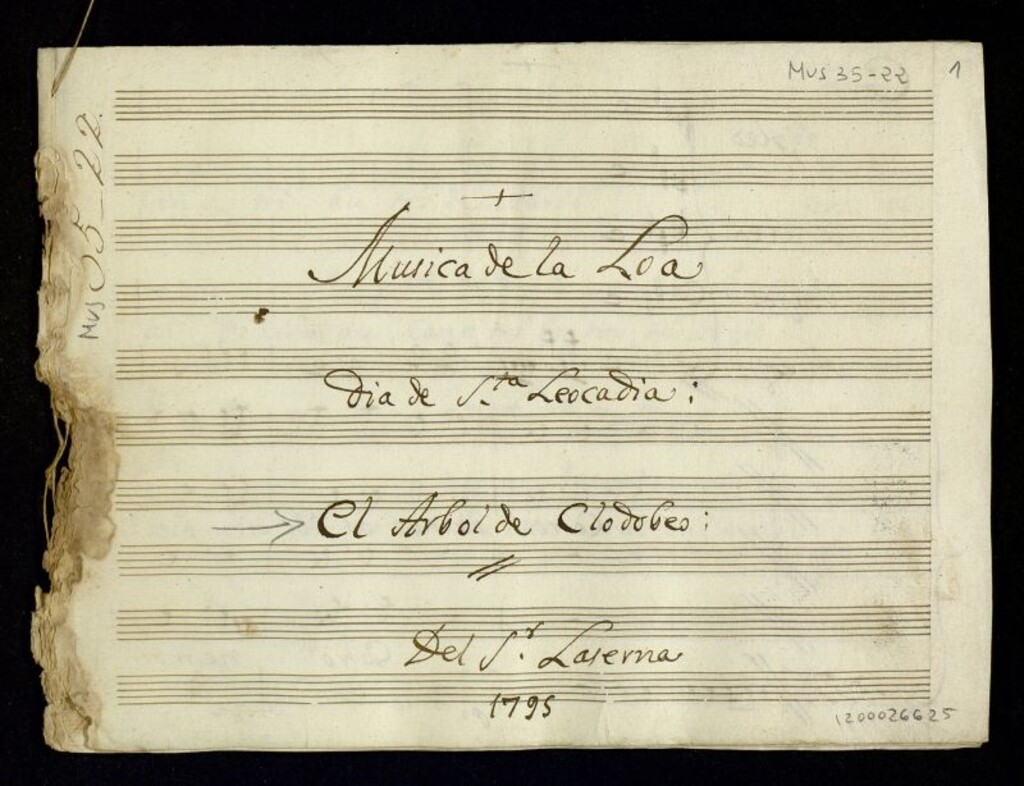 Mus 35-22 1
Mus 35-22.
Musica de la Loa
Dia de S.ta Leocadia:
El Arbol de Clodobeo:
Del S.r Laserna
1795
1200026625